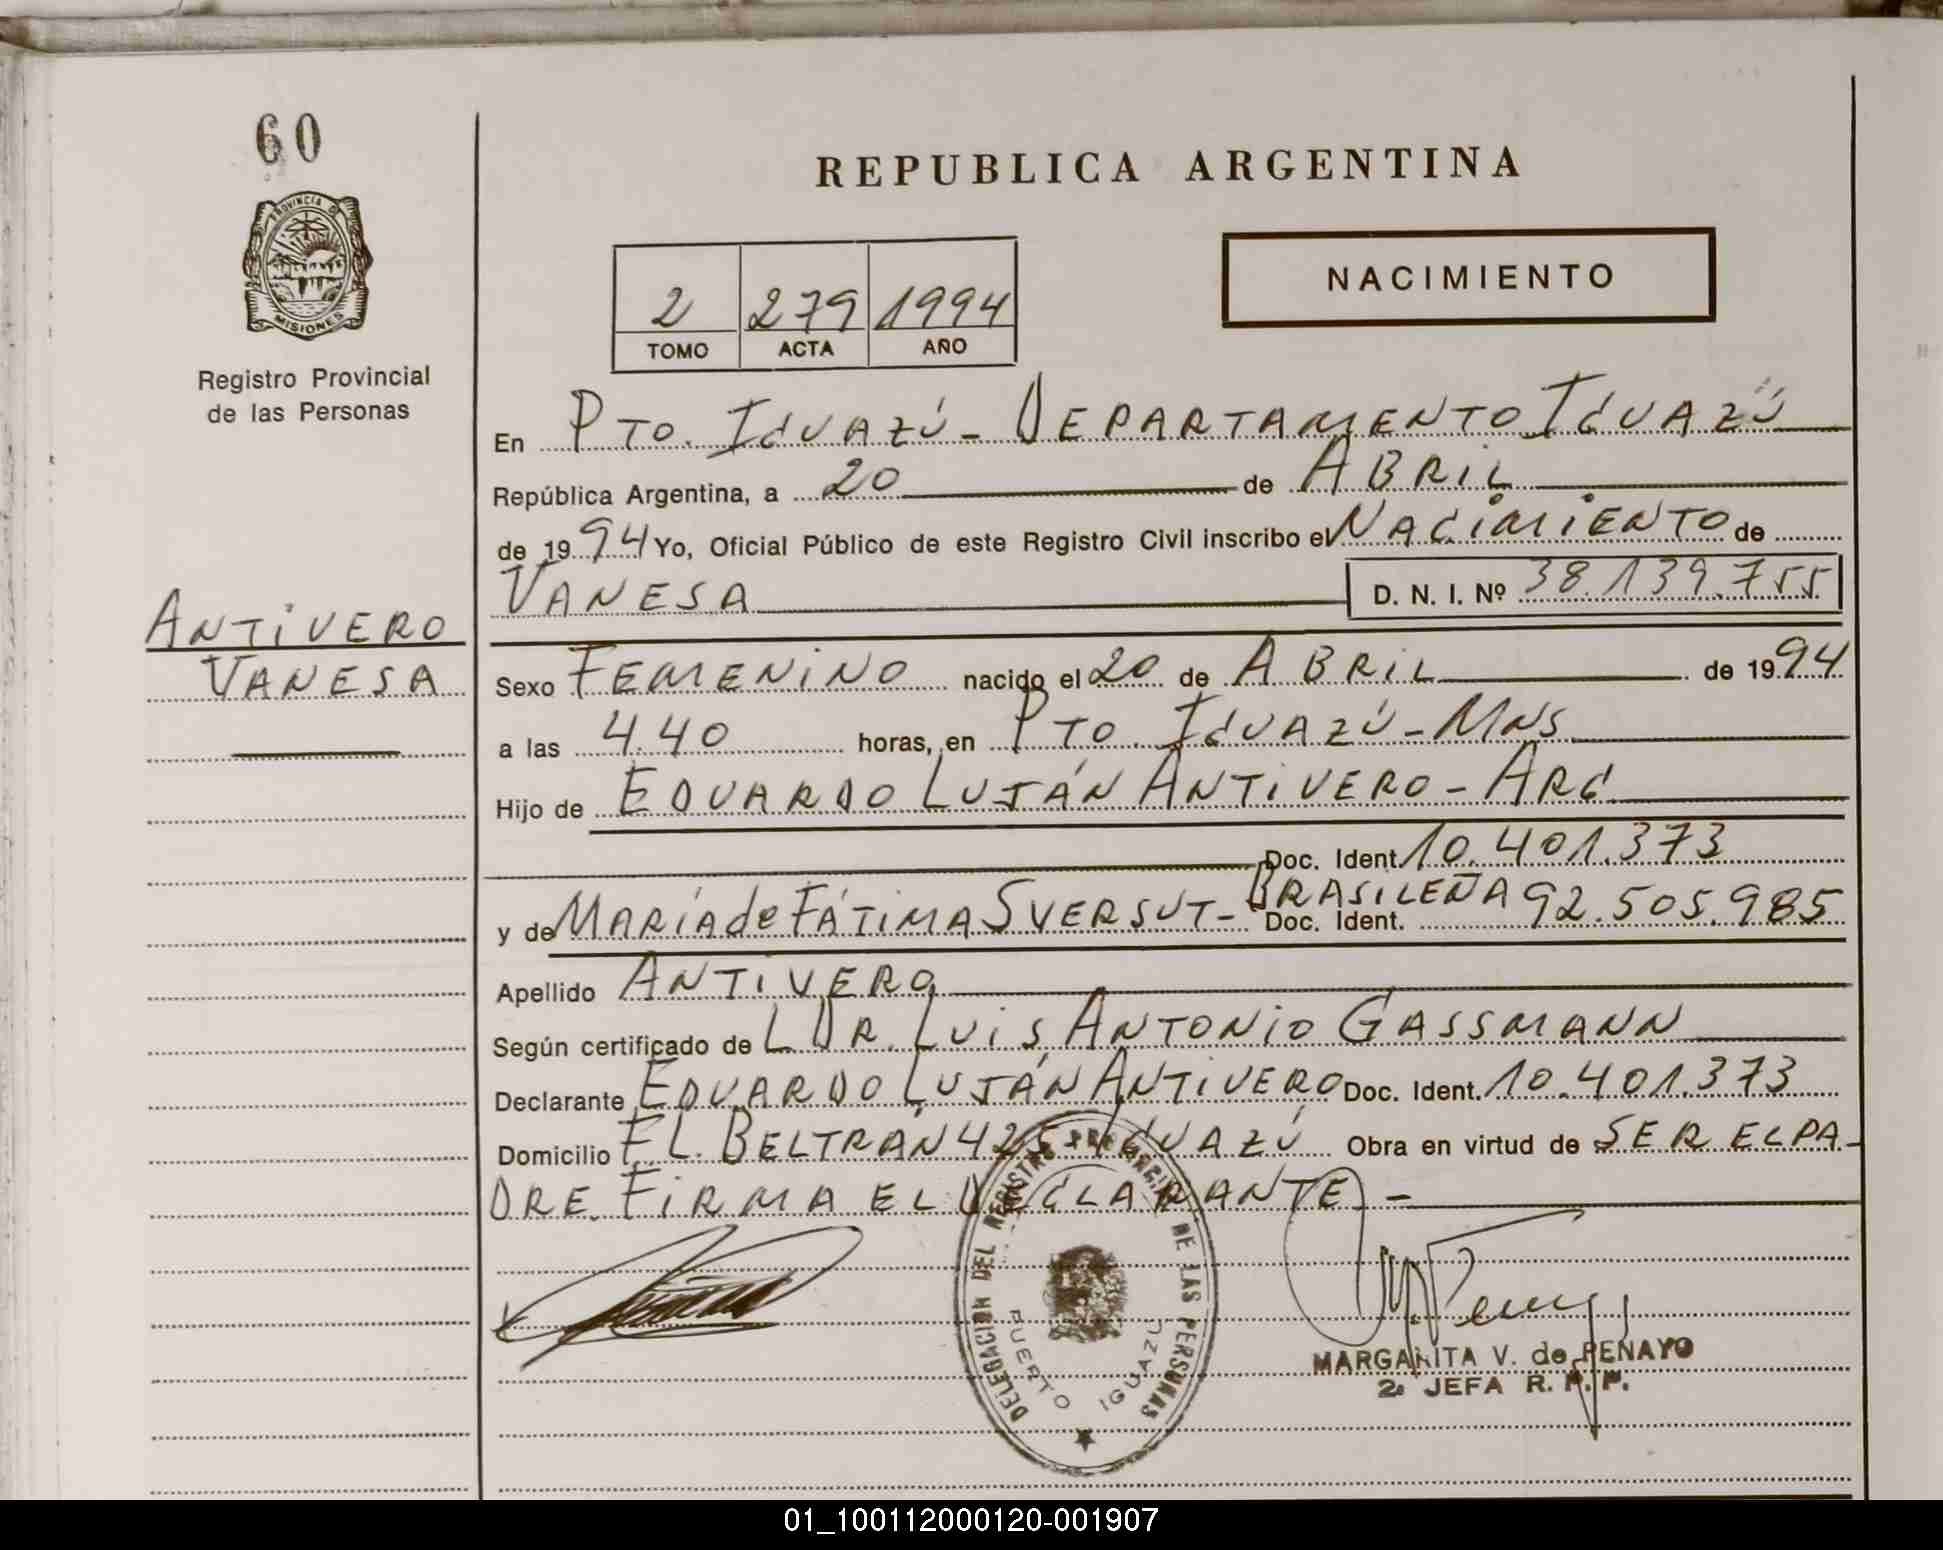 60
PROVINCIA DE
MISIONES
Registro Provincial
de las Personas
REPUBLICA ARGENTINA
2 279 1994
TOMO ACTA AÑO
NACIMIENTO
En PTO. IGUAZÚ - DEPARTAMENTO IGUAZÚ
República Argentina, a 20 de ABRIL
de 1994 Yo, Oficial Público de este Registro Civil inscribo el NACIMIENTO de
VANESA D. N. I. Nº 38.139.755
ANTIVERO
VANESA
Sexo FEMENINO nacido el 20 de ABRIL de 1994
a las 4.40 horas, en PTO. IGUAZÚ - MNS.
Hijo de EDUARDO LUJÁN ANTIVERO - ARG
Doc. Ident. 10.401.373
y de MARÍA de FÁTIMA SVERSUT - BRASILEÑA Doc. Ident. 92.505.985
Apellido ANTIVERO
Según certificado de L DR. LUIS ANTONIO GASSMANN
Declarante EDUARDO LUJÁN ANTIVERO Doc. Ident. 10.401.373
Domicilio F L. BELTRÁN 425 IGUAZÚ Obra en virtud de SER EL PA-
DRE. FIRMA EL DECLARANTE -
DELEGACION DEL REGISTRO PROVINCIAL DE LAS PERSONAS
PUERTO IGUAZU
MARGARITA V. de PENAYO
2a JEFA R. P. P.
01_100112000120-001907